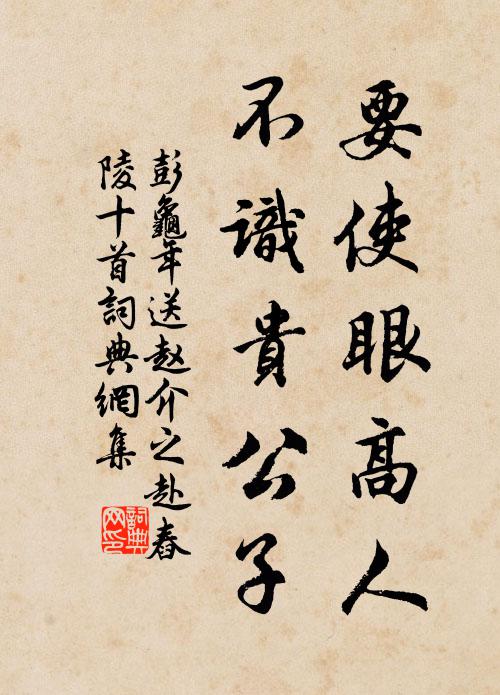 要使眼高人
不識貴公子
彭龜年送赵介之赴舂
陵十首詞典網集
詞典网印